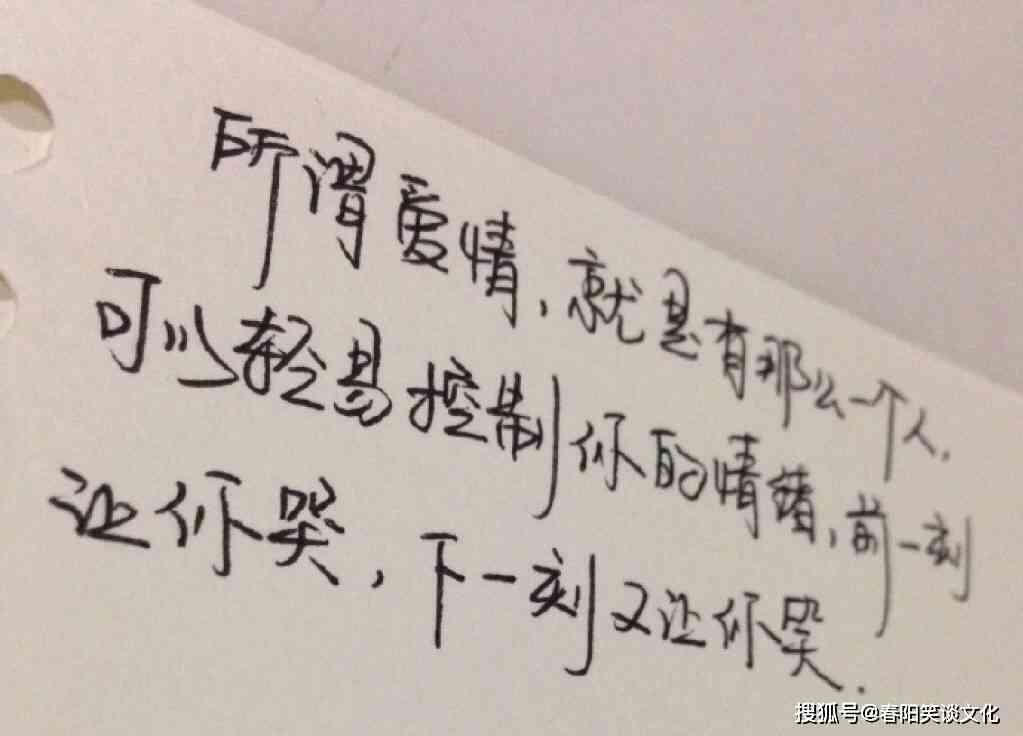 所谓爱情,就是有那么一个人,
可以轻易控制你的情绪,前一刻
让你哭,下一刻又让你哭.
搜狐号@春阳笑谈文化